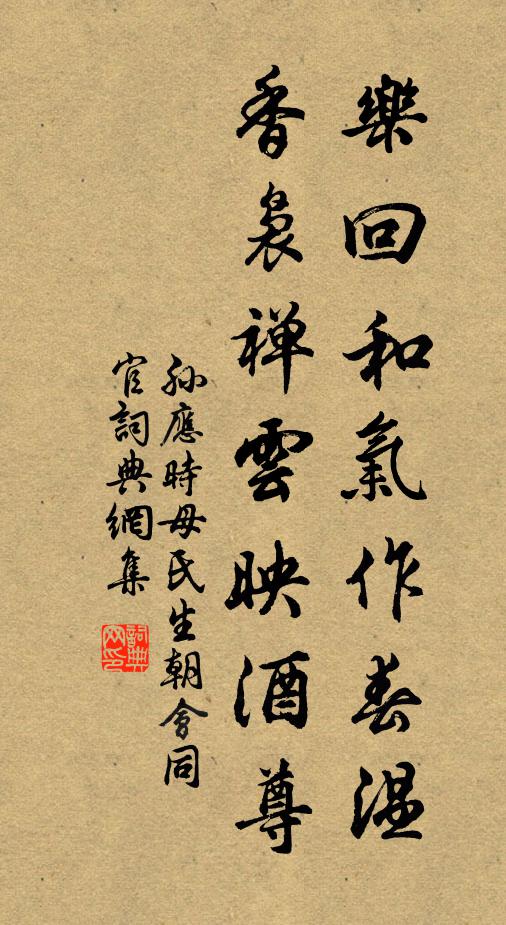 樂回和氣作春温
香裊禅雲映酒尊
孫應時母氏生朝會同
官詞典網集
詞典
网印